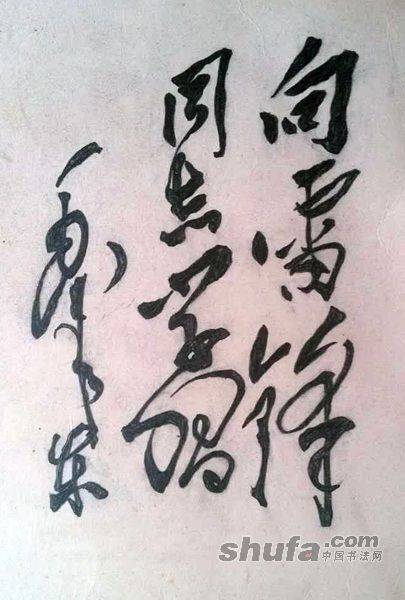 向雷锋
同志学习
毛泽东
shufa.com
中国书法网